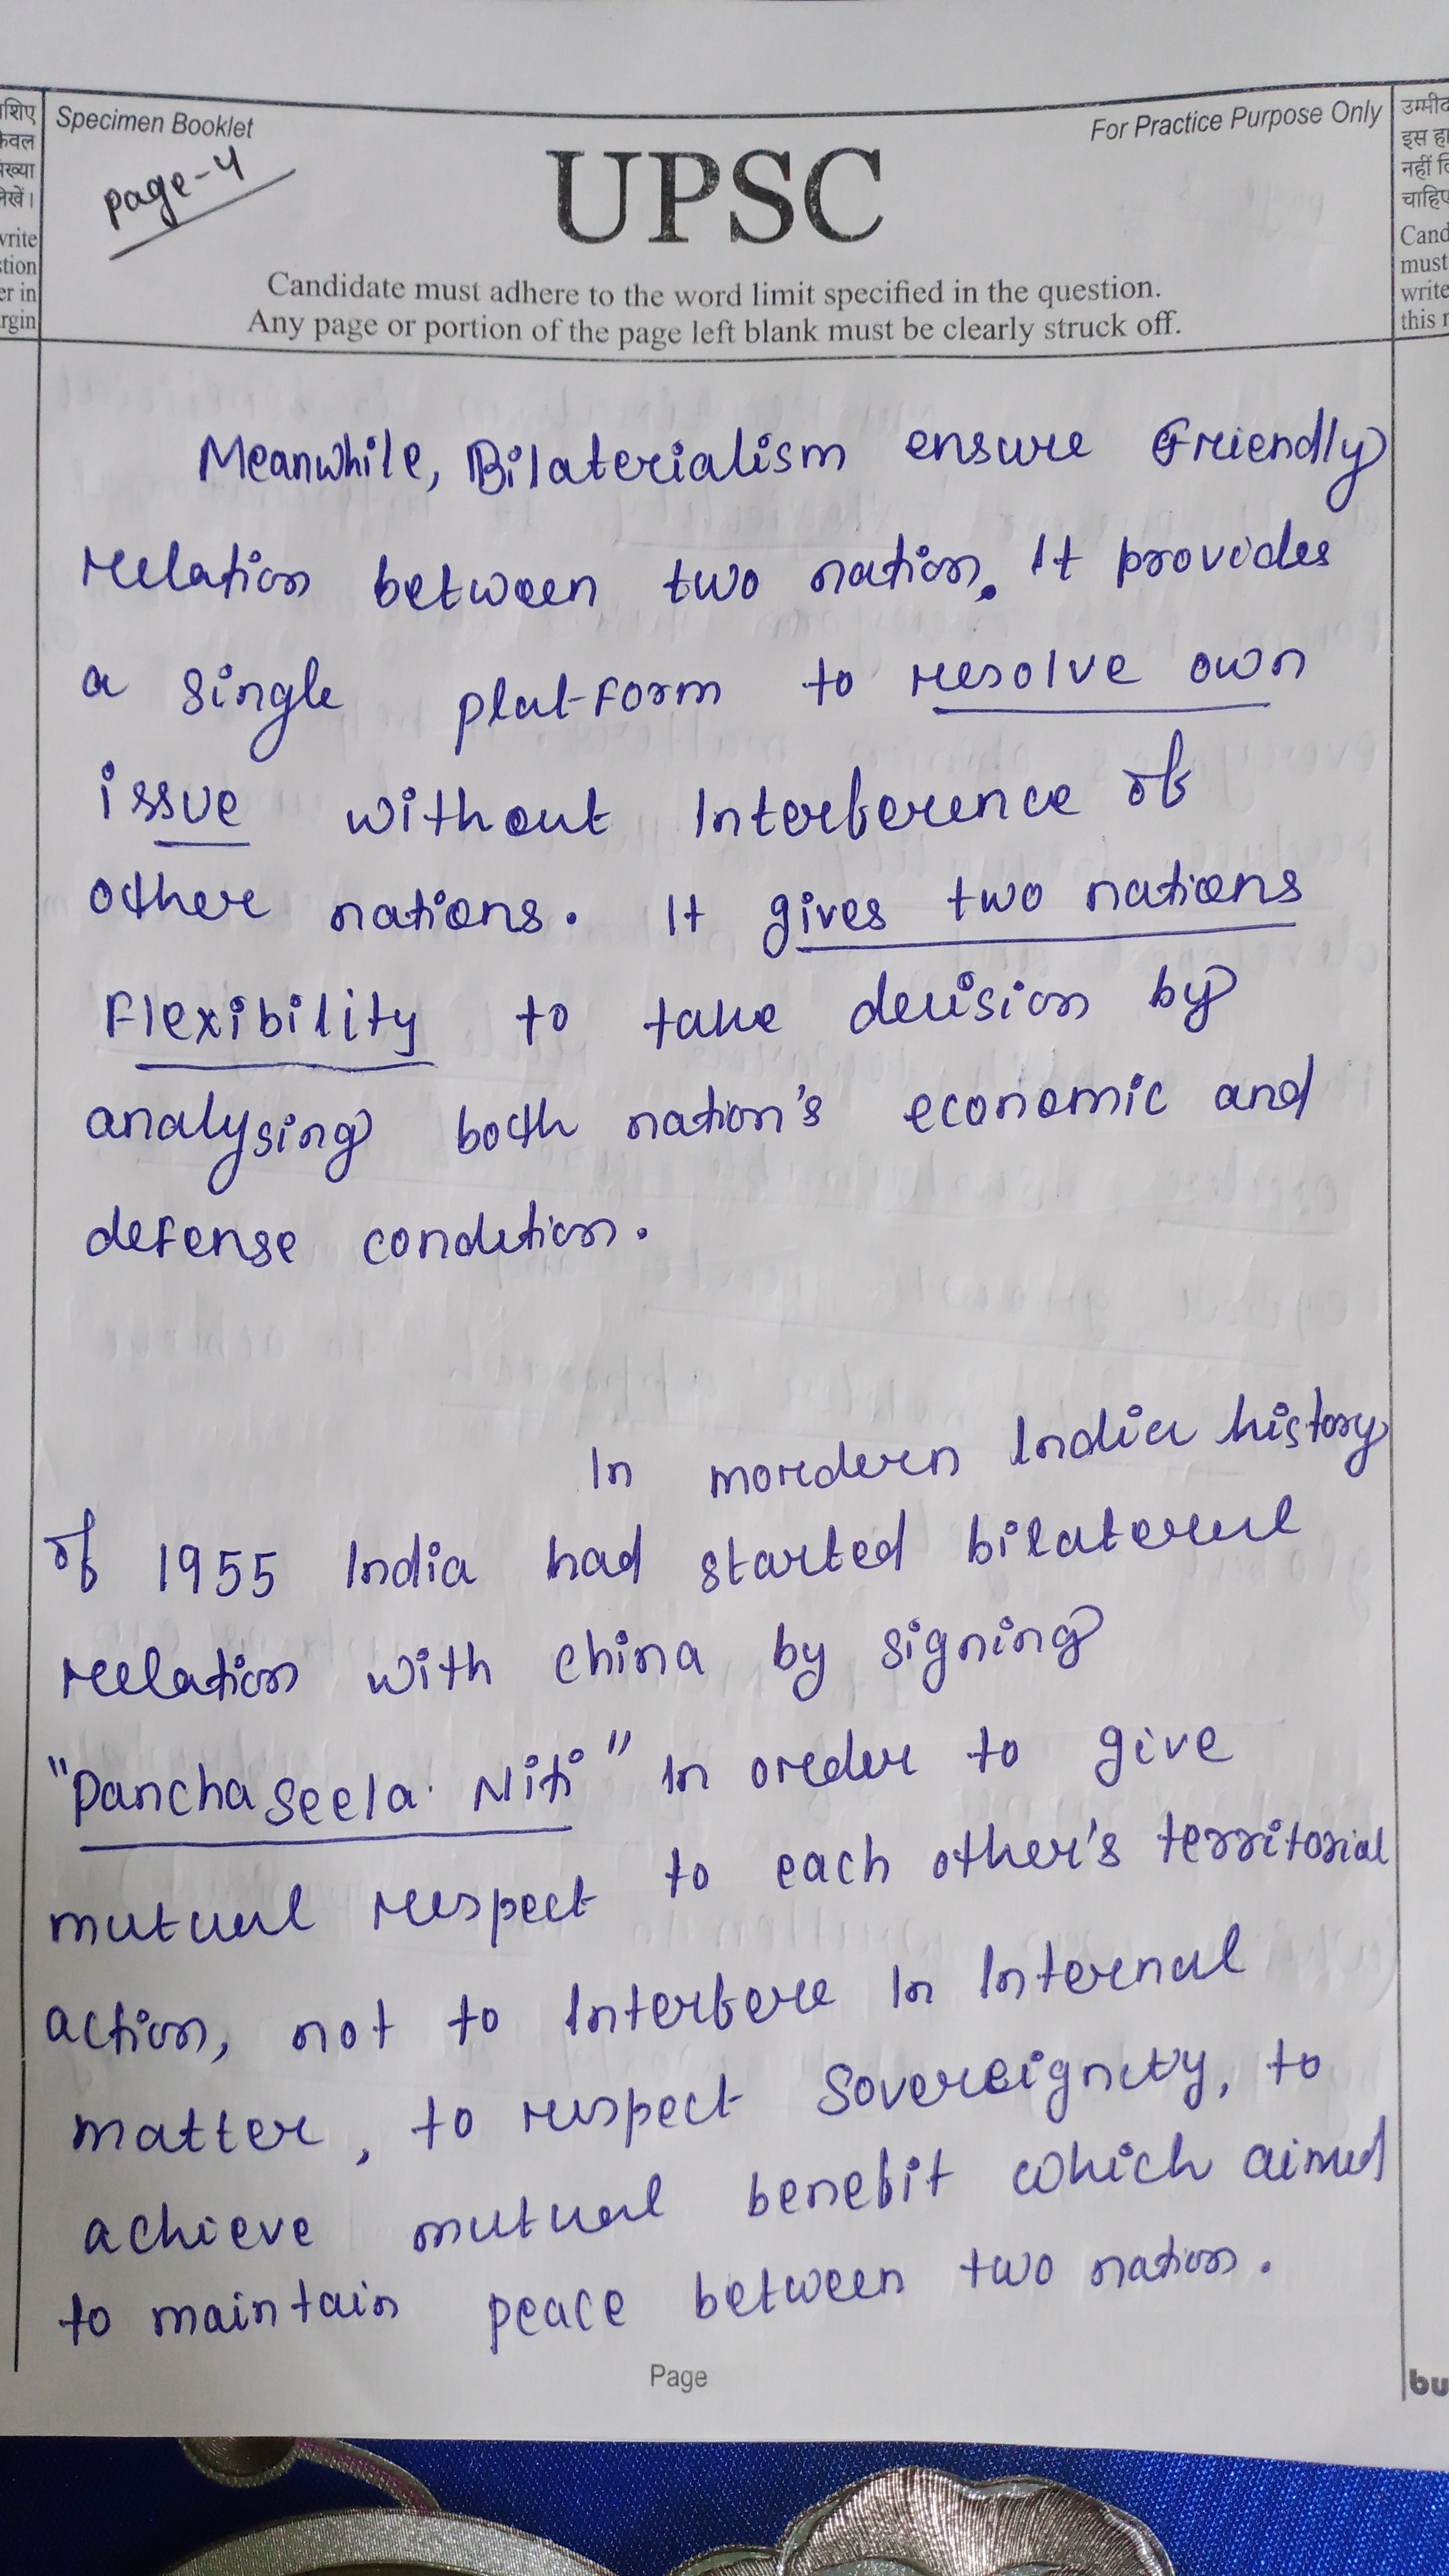 शिए
केवल
संख्या
लिखें।
write
stion
er in
rgin
Specimen Booklet
For Practice Purpose Only
page-4
UPSC
Candidate must adhere to the word limit specified in the question.
Any page or portion of the page left blank must be clearly struck off.
उम्मीद
इस हा
नहीं लि
चाहिए
Cand
must
write
this r
Meanwhile, Bilaterialism ensure Friendly
relation between two nation. It provides
a single plat-form to resolve own
issue without Interference of
other nations. It gives two nations
Flexibility to take decision by
analysing both nation's economic and
defense condition.
In mordern India history
of 1955 India had started bilateral
relation with china by signing
"Panchaseela Niti" In order to give
mutual respect to each other's territorial
action, not to Interfere In Internal
matter, to respect Sovereignity, to
achieve mutual benefit which aimed
to maintain peace between two nation.
Page
bu